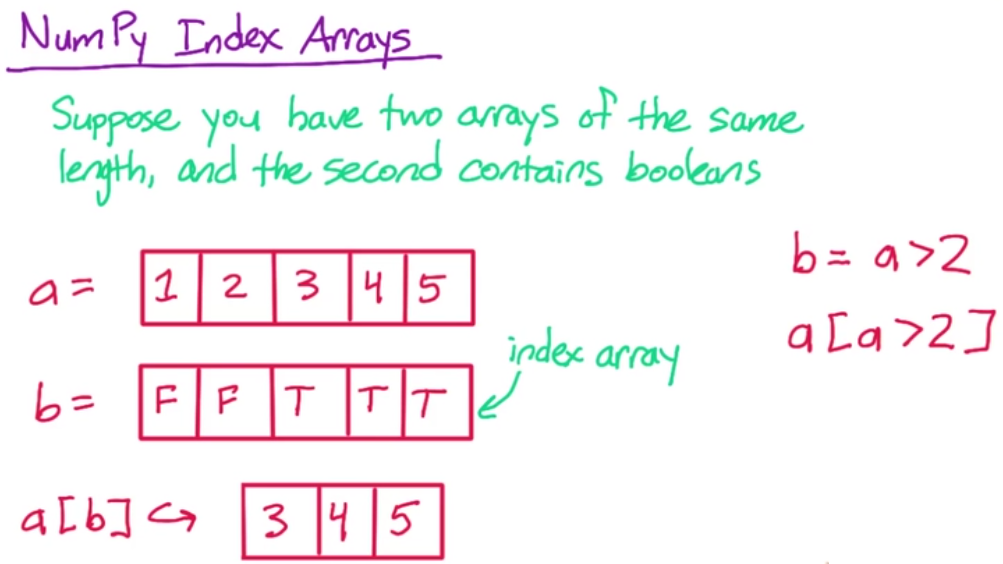 NumPy Index Arrays
Suppose you have two arrays of the same
length, and the second contains booleans
a = 1 2 3 4 5
b = F F T T T
index array
a[b] ↪ 3 4 5
b = a>2
a[a>2]